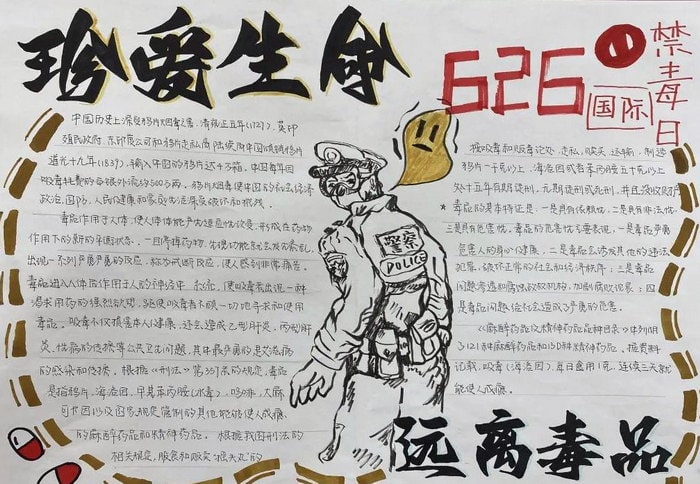 珍爱生命
626
国际
禁毒日
中国历史上深受鸦片烟毒之害,清雍正五年(1727),英印
殖民政府、东印度公司把鸦片走私 陆续向中国倾销鸦片
道光十九年(1839),输入中国的鸦片达4万箱,中国每年因
吸毒耗费的白银外流约500万两,鸦片烟毒使中国的社会经济
政治、国防、人民健康和家庭生活深受破坏和扰乱。
毒品作用于人体,使人体体能产生适应性改变,形成在药物
作用下的新的平衡状态。一旦停掉药物,生理功能就会发生紊乱
出现一系列严重严重的反应,称为戒断反应,使人感到非常痛苦。
毒品进入人体后作用于人的神经中 系统,使吸毒者出现一种
渴求用药的强烈欲望,驱使吸毒者不顾一切地寻求和使用
毒品。吸毒不仅损害本人健康,还会造成乙型肝炎、丙型肝
炎、性病的传播等公共卫生问题,其中最严重的是艾滋病
的感染和传播。根据《刑法》第357条的规定,毒品
是指鸦片、海洛因、甲基苯丙胺(冰毒)、吗啡、大麻
可卡因以及国家规定管制的其他能够使人成瘾
的麻醉药品和精神药品。根据我国刑法的
相关规定,服食和贩卖“摇头丸”的
警察
POLICE
按吸毒和贩毒论处。走私、贩卖、运输、制造
鸦片一千克以上,海洛因或者苯丙胺五十克以上
处十五年有期徒刑、无期徒刑或死刑,并且没收财产
*毒品的基本特征是:一是具有依赖性,二是具有非法性
三是具有危害性,毒品的危害性主要表现:一是毒品严重
危害人的身心健康,二是毒品会诱发其他的违法
犯罪,破坏正常的社会和经济秩序;三是毒品
问题渗透和腐蚀政权机构,加剧腐败现象;四
是毒品问题给社会造成了严重的危害。
《麻醉药品及精神药品品种目录》中列明
了121种麻醉药品和130种精神药品。据资料
记载,吸毒(海洛因)每日食用1克,连续三天就
能使人成瘾。
远离毒品